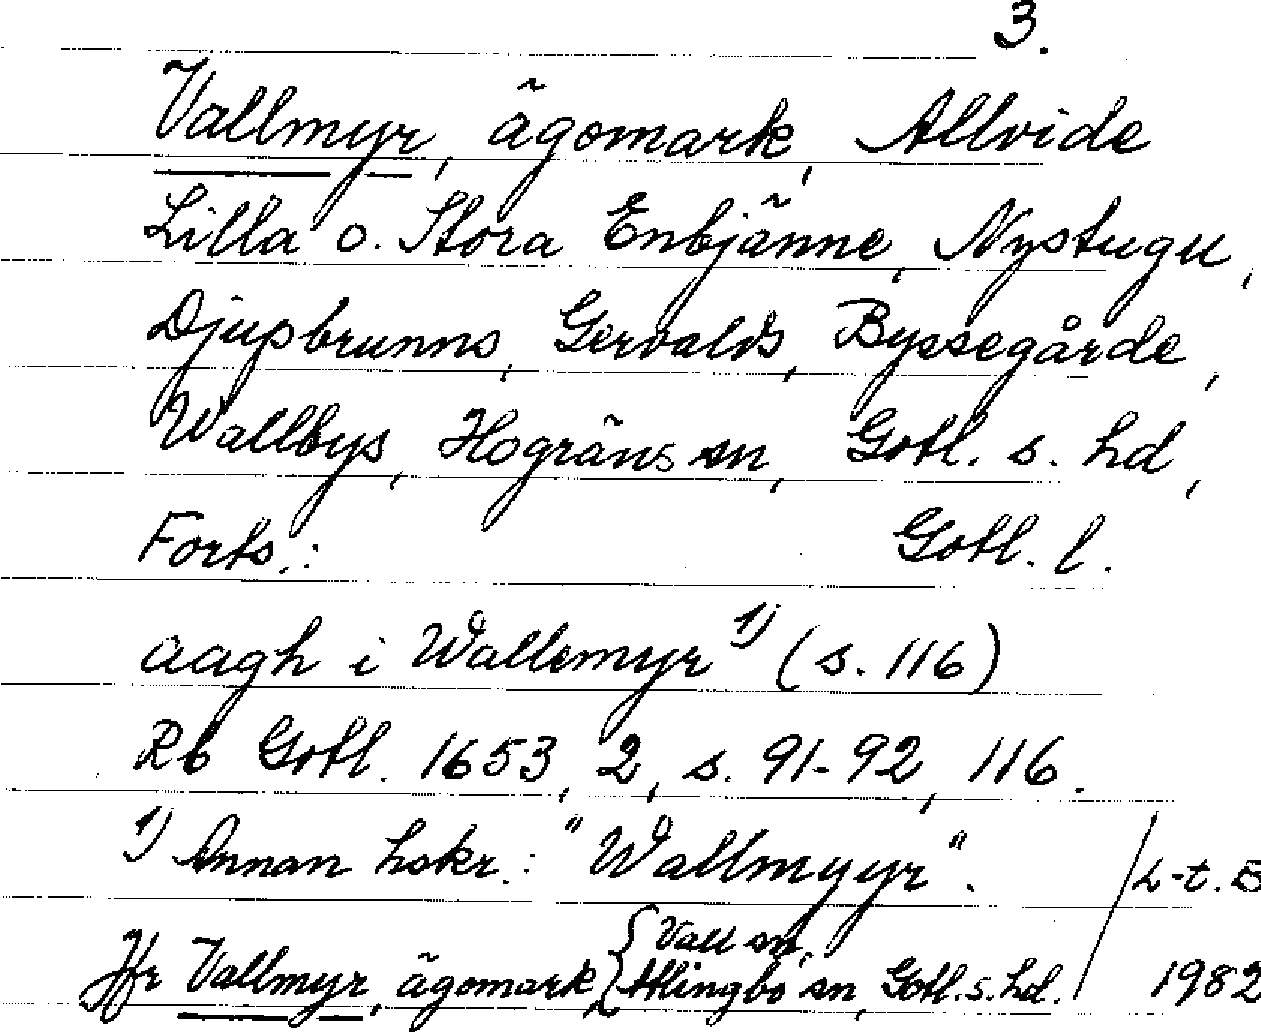 3.
Vallmyr, ägomark, Allvide
Lilla o. Stora Enbjänne, Nystugu,
Djupbrunns, Gervalds, Byssegårde,
Wallbys, Hogräns sn, Gotl. s. hd,
Forts.: Gotl. l.
aagh i Wallemyr 1) (s. 116)
Rb Gotl. 1653, 2, s. 91-92, 116.
1) Annan hskr.: "Wallmyyr".
L-t. B
Jfr Vallmyr, ägomark, { Vall sn,
Atlingbo sn, Gotl. s. hd.
1982